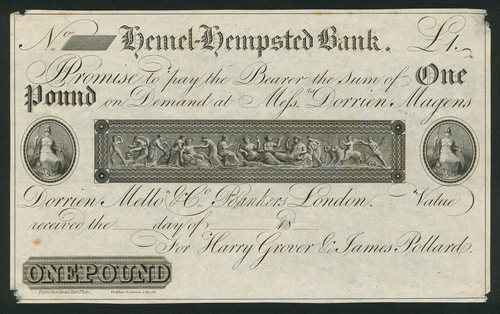 No. Hemel-Hempsted Bank. £1.
I Promise to pay the Bearer the sum of One
Pound on Demand at Messrs. Dorrien Magens
Dorrien Mello & Co. Bankers London. Value
received the day of 18
For Harry Grover & James Pollard.
ONE POUND